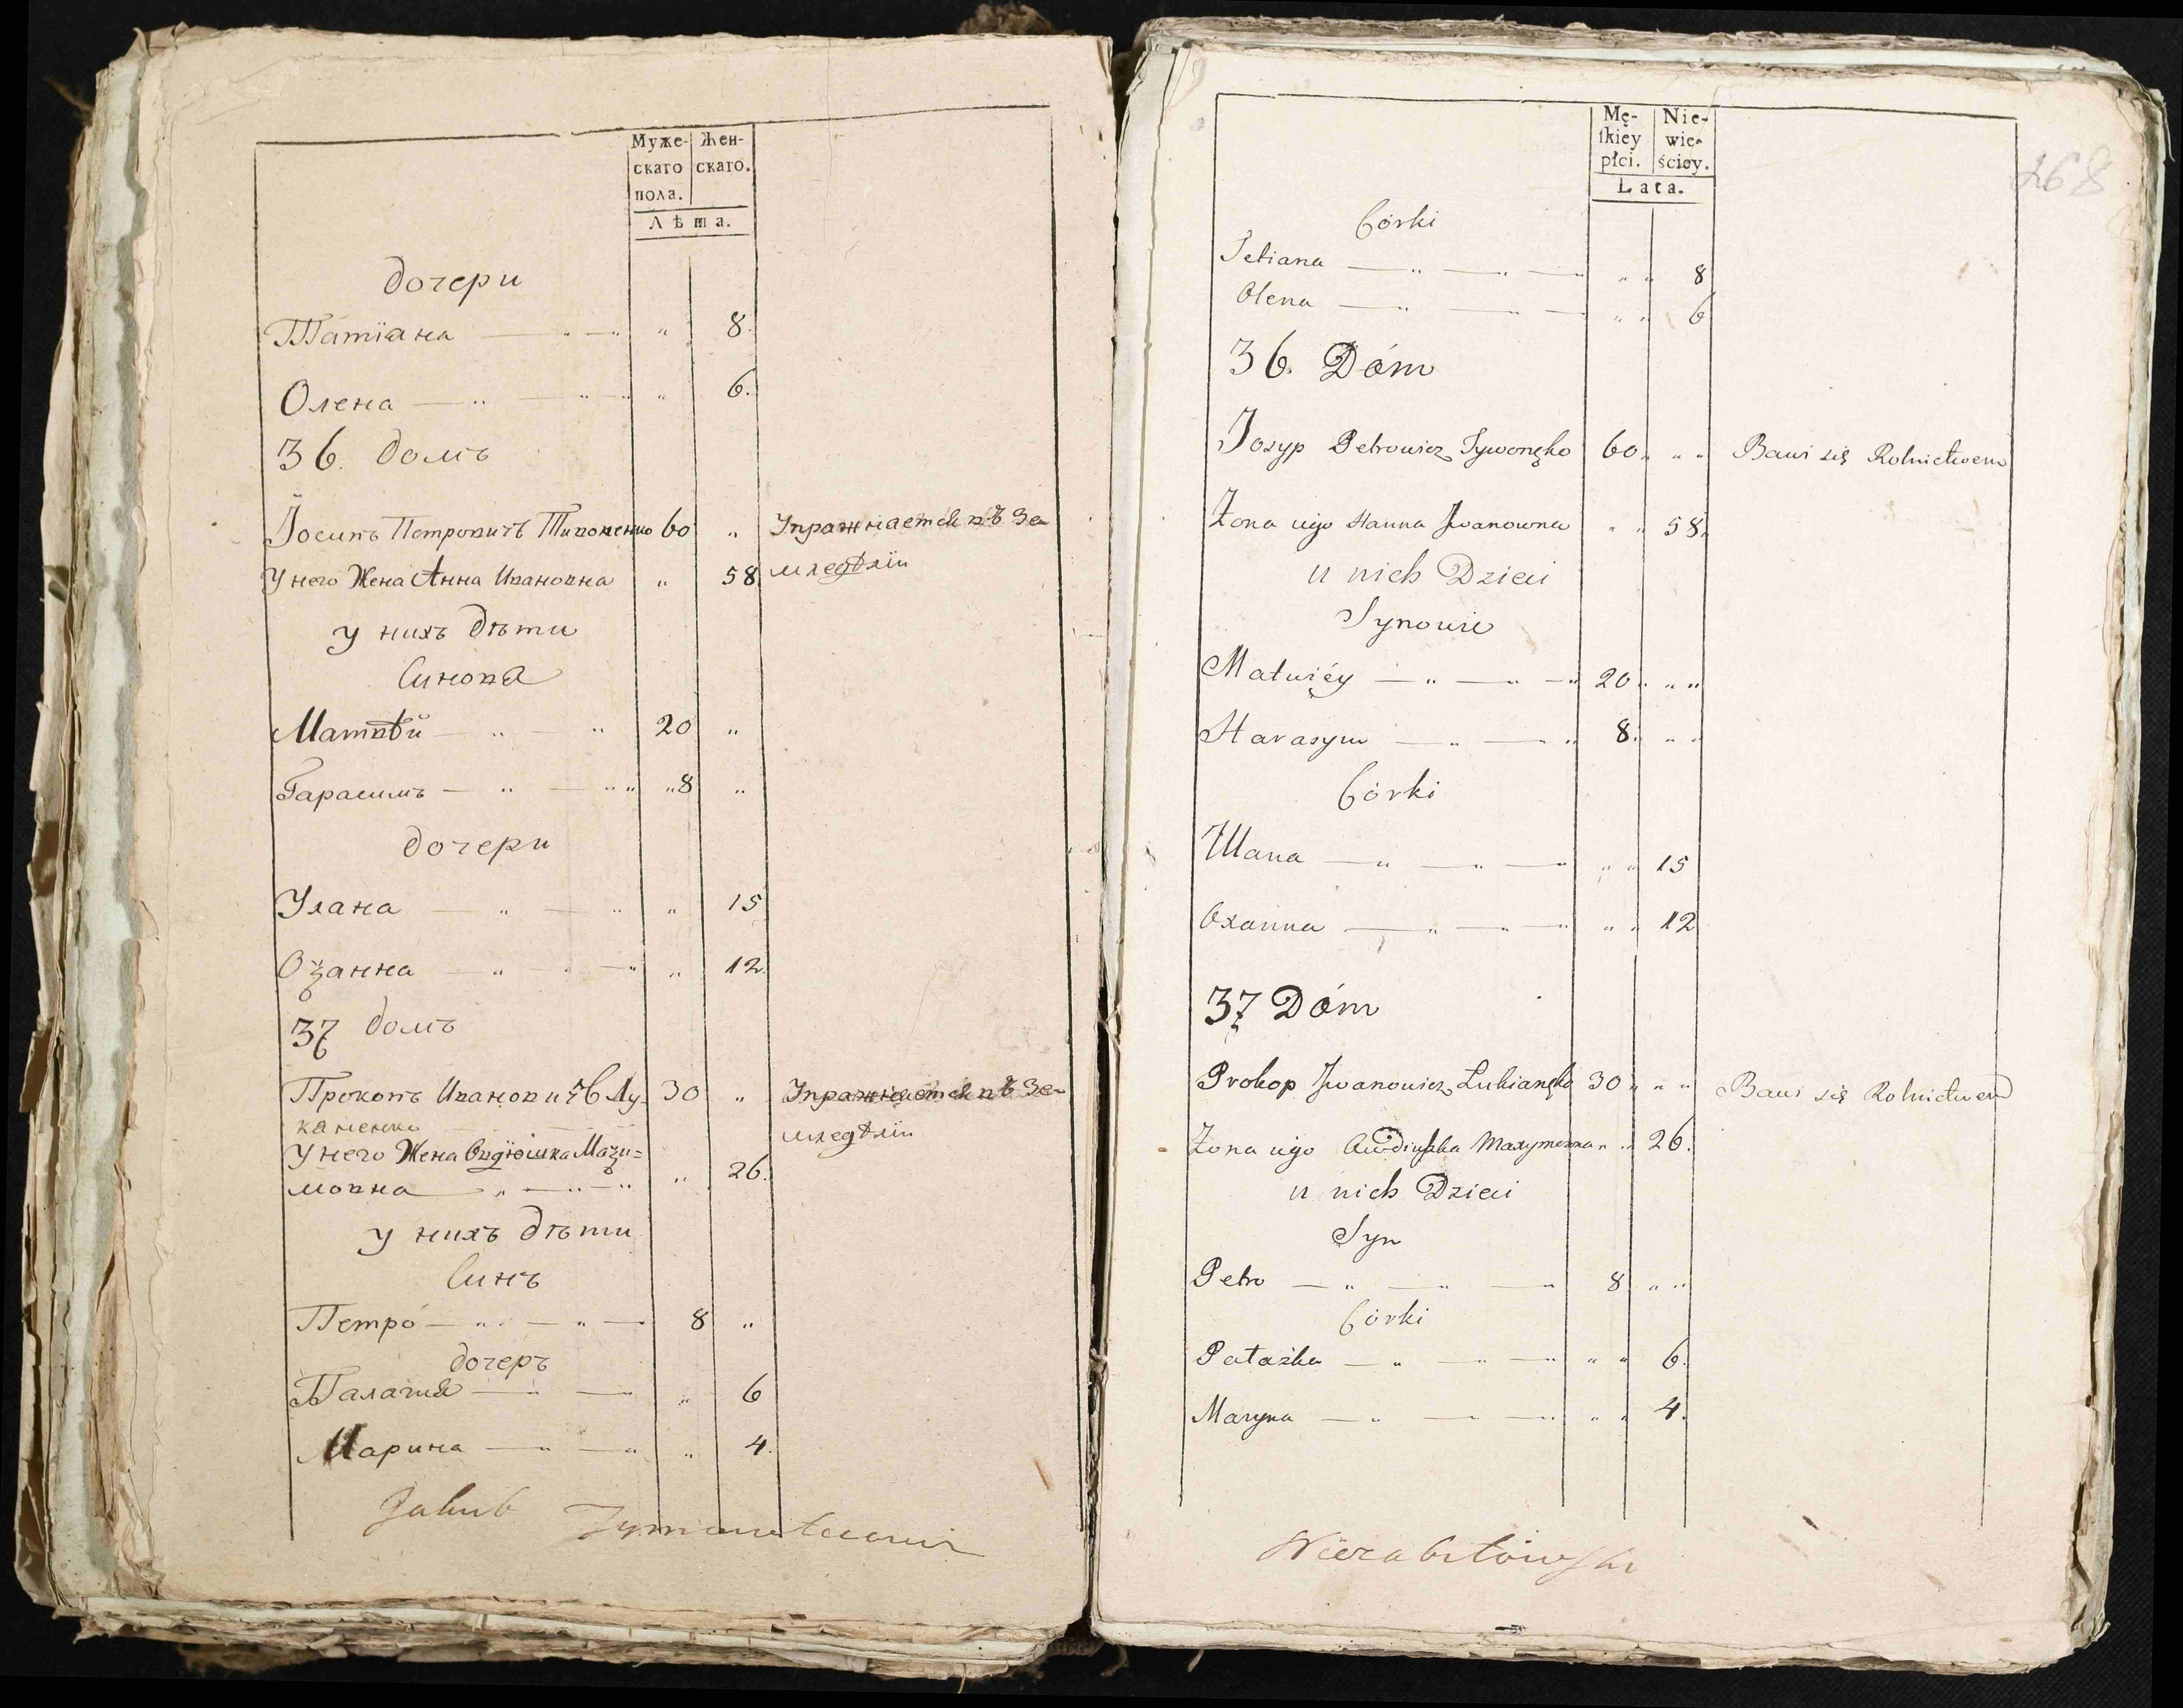 Муже-
скаго
пола.
Жен-
скаго.
Лѣта.
дочери
Татіана — „ — „ „ 8.
Олена — „ — „ — „ „ 6.
36. домъ
Іосипъ Петровичъ Тивоненко 60 „ Упражнается въ зе-
У него Жена Анна Ивановна „ 58 мледѣліи
у нихъ дѣти
Синовя
Матвѣй — „ — „ 20 „
Гарасимъ — „ — „ „ „ 8 „
дочери
Улана — „ — „ „ 15
Оѯанна — „ — „ „ 12.
37 домъ
Прокопъ Ивановичъ Лу- 30 „ Упражнается въ зе-
каненко мледѣліи
У него Жена Овдюшка Маѯи=
мовна — „ — „ — „ „ 26.
у нихъ дѣти
Синъ
Петро — „ — „ — 8 „
дочеръ
Палагия — „ — „ „ 6
Марина — „ — „ „ 4.
Jakub
Mę-
ſkiey
płci.
Nie-
wie-
ściey.
Lata.
268
Córki
Tetiana — „ — „ — „ „ „ 8
Olena — „ — „ — „ „ 6
36. Dóm
Josyp Petrowicz Tywonęko 60 „ „ „ Bawi się Rolnictwem
Żona iego Hanna Jwanowna „ „ 58.
u nich Dzieci
Synowie
Matwiéy — „ — „ — „ 20 „ „ „
Harasym — „ — „ 8. „ „
Córki
Ulana — „ — „ — „ „ „ 15
Oxanna — „ — „ — „ „ „ 12
37 Dóm
Prokop Jwanowicz Łukianęko 30 „ „ „ Bawi się Rolnictwem
Żona iego Awdiuſzka Maxymowna „ „ 26.
u nich Dzieci
Syn
Petro — „ — „ — „ 8 „ „
Córki
Patażka — „ — „ — „ „ „ 6.
Maryna — „ — „ — „ „ „ 4.